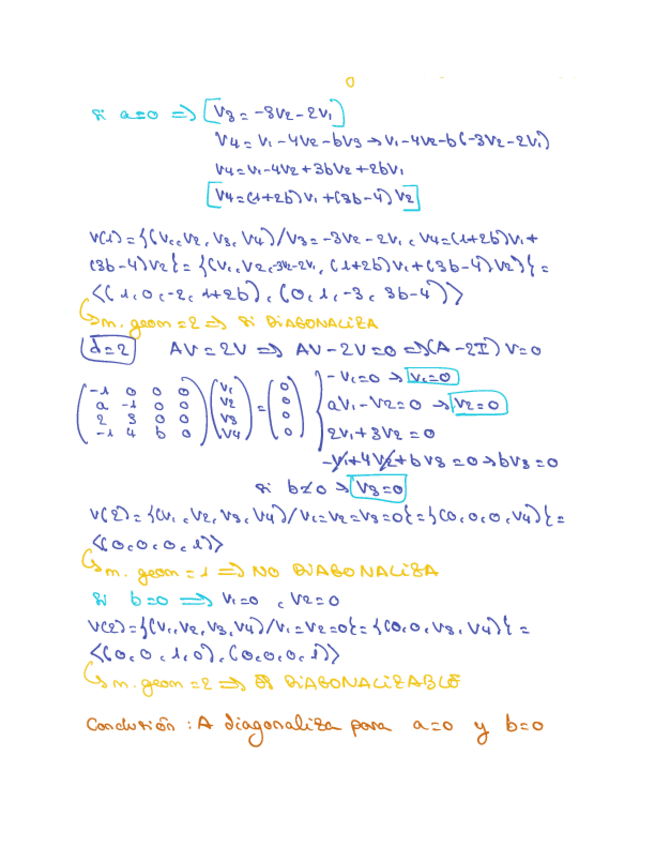 0
Si a=0 => [V3 = -3V2 - 2V1]
V4 = V1 - 4V2 - bV3 → V1 - 4V2 - b(-3V2 - 2V1)
V4 = V1 - 4V2 + 3bV2 + 2bV1
[V4 = (1+2b)V1 + (3b-4)V2]
V(1) = {(V1, V2, V3, V4) / V3 = -3V2 - 2V1, V4 = (1+2b)V1 +
(3b-4)V2} = {(V1, V2, -3V2-2V1, (1+2b)V1 + (3b-4)V2)} =
<(1, 0, -2, 1+2b), (0, 1, -3, 3b-4)>
↳ m. geom = 2 => SI DIAGONALIZA
d=2 AV = 2V => AV - 2V = 0 => (A - 2I) V = 0
-1 0 0 0 V1 0 -V1 = 0 → V1 = 0
a -1 0 0 V2 = 0 aV1 - V2 = 0 → V2 = 0
2 3 0 0 V3 0 2V1 + 3V2 = 0
-1 4 b 0 V4 0 -V1 + 4V2 + bV3 = 0 → bV3 = 0
Si b≠0 → V3 = 0
V(2) = {(V1, V2, V3, V4) / V1 = V2 = V3 = 0} = {(0, 0, 0, V4)} =
<(0, 0, 0, 1)>
↳ m. geom = 1 => NO DIAGONALIZA
Si b=0 => V1 = 0, V2 = 0
V(2) = {(V1, V2, V3, V4) / V1 = V2 = 0} = {(0, 0, V3, V4)} =
<(0, 0, 1, 0), (0, 0, 0, 1)>
↳ m. geom = 2 => SI DIAGONALIZABLE
Conclusión : A diagonaliza para a=0 y b=0